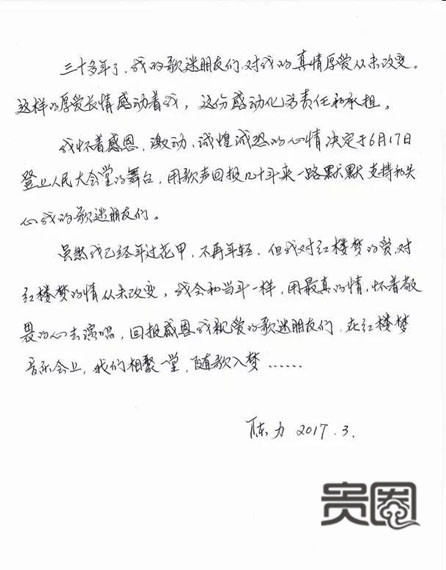 三十多年了，我的歌迷朋友们，对我的真情厚爱从未改变。
这样的厚爱长情感动着我，这份感动化为责任和承担。
我怀着感恩，激动，诚惶诚恐的心情决定于6月17日
登上人民大会堂的舞台，用歌声回报几十年来一路默默支持和关
心我的歌迷朋友们。
虽然我已经年过花甲，不再年轻，但我对红楼梦的爱，对
红楼梦的情从未改变，我会和当年一样，用最真的情，怀着敬
畏的心去演唱，回报感恩我亲爱的歌迷朋友们，在红楼梦
音乐会上，我们相聚一堂，随歌入梦……
陈力 2017.3.
贵圈